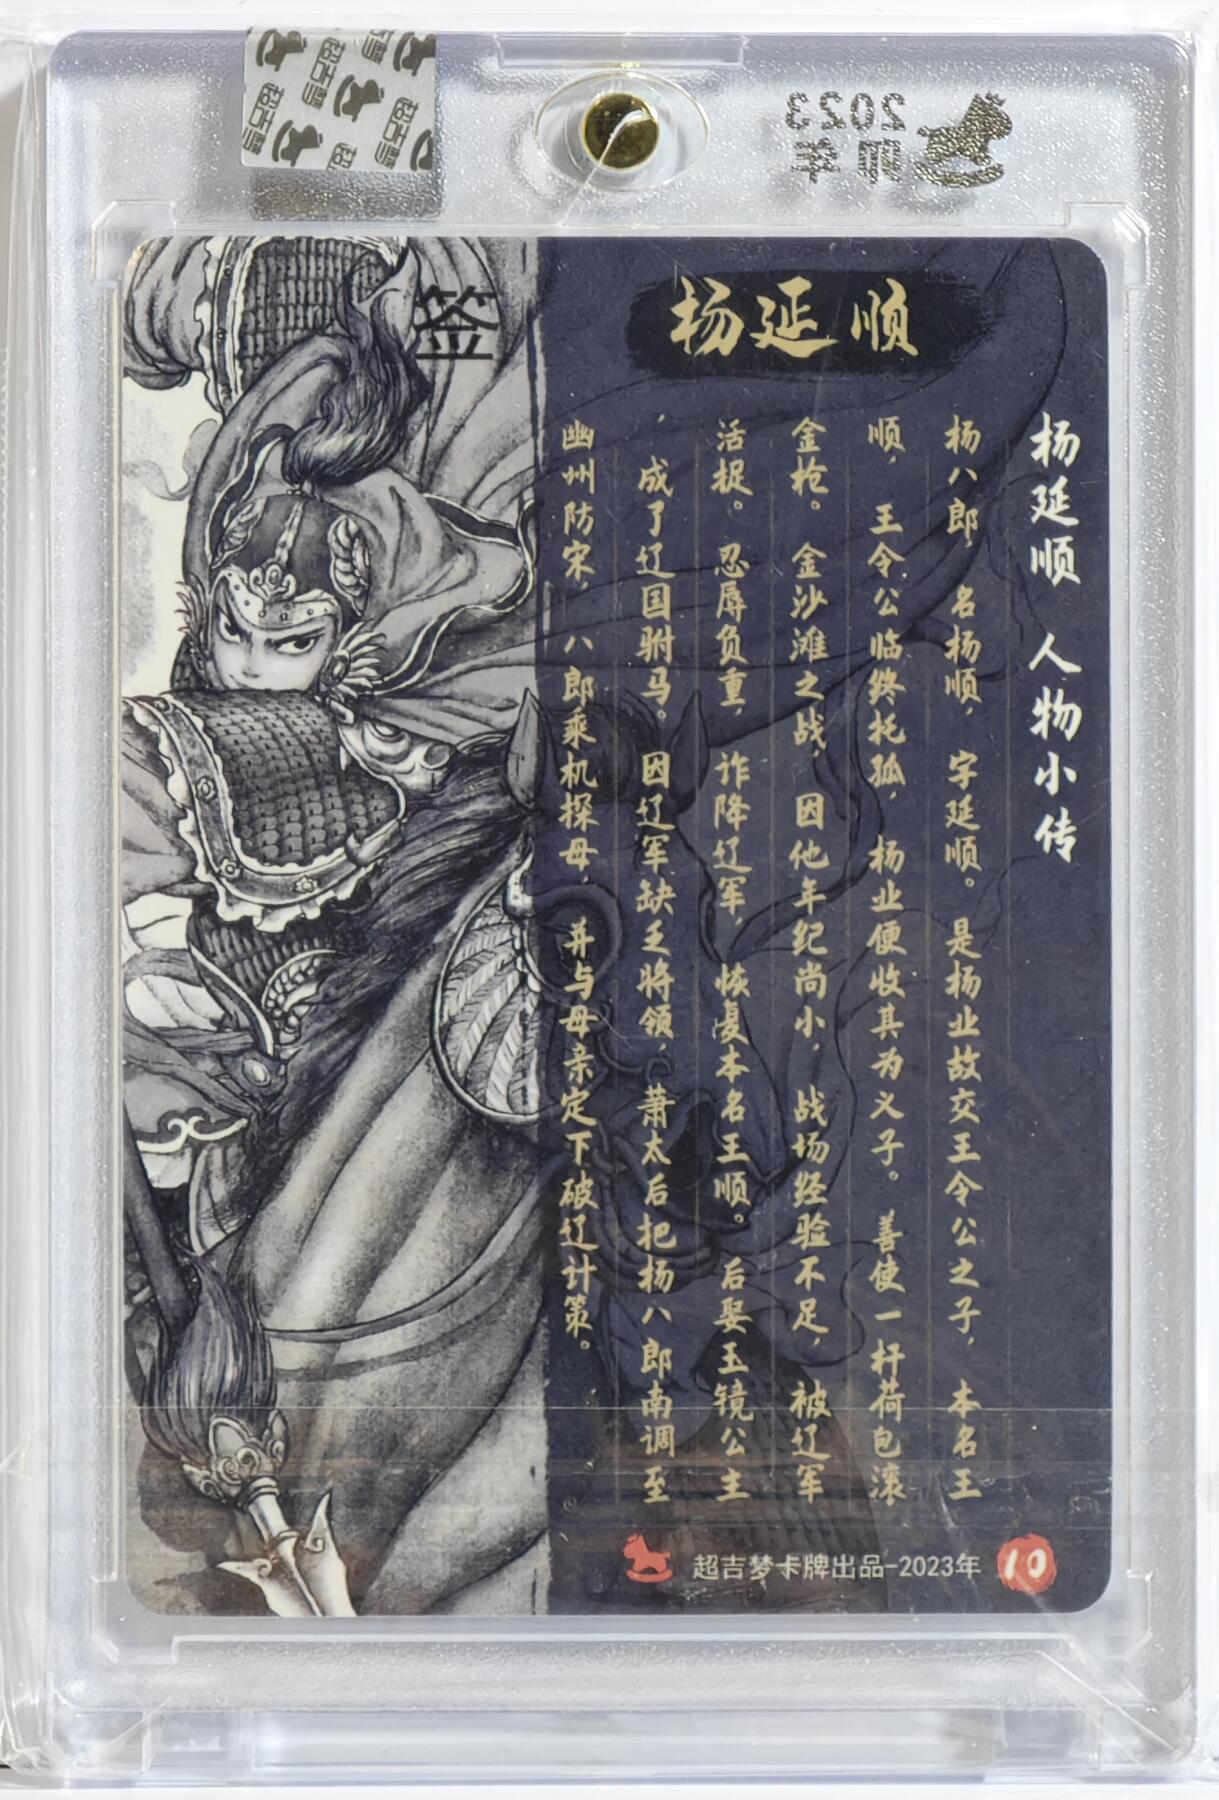 超吉梦
2023
签
杨延顺
杨延顺 人物小传
杨八郎 名杨顺，字延顺。是杨业故交王令公之子，本名王
顺，王令公临终托孤，杨业便收其为义子。善使一杆荷包滚
金枪。金沙滩之战，因他年纪尚小，战场经验不足，被辽军
活捉。忍辱负重，诈降辽军，恢复本名王顺。后娶玉镜公主
，成了辽国驸马。因辽军缺乏将领，萧太后把杨八郎南调至
幽州防宋，八郎乘机探母，并与母亲定下破辽计策。
超吉梦卡牌出品-2023年
10